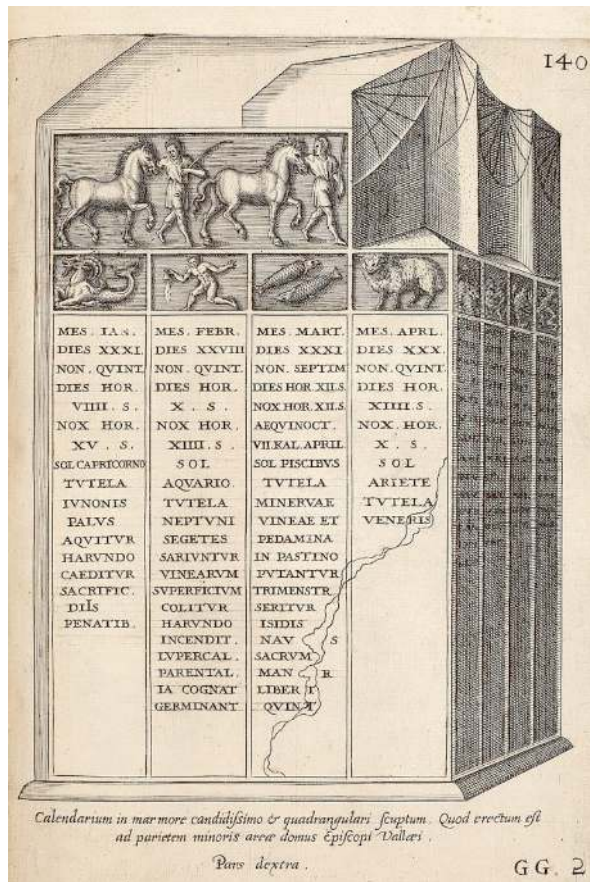 140
MES . IAN.
DIES XXXI
NON. QVINT.
DIES HOR.
VIIII . S .
NOX HOR.
XV . S.
SOL CAPRICORNO
TVTELA
IVNONIS
PALVS
AQVITVR
HARVNDO
CAEDITVR
SACRIFIC.
DIIS
PENATIB.
MES . FEBR.
DIES XXVIII
NON. QVINT.
DIES HOR.
X . S .
NOX HOR.
XIIII . S .
SOL
AQVARIO.
TVTELA
NEPTVNI
SEGETES
SARIVNTVR
VINEARVM
SVPERFICIVM
COLITVR
HARVNDO
INCENDIT.
LVPERCAL.
PARENTAL.
IA COGNAT
GERMINANT
MES . MART.
DIES XXXI
NON. SEPTIM
DIES HOR XII.S.
NOX HOR. XII.S.
AEQVINOCT.
VII KAL APRIL
SOL PISCIBVS
TVTELA
MINERVAE
VINEAE ET
PEDAMINA
IN PASTINO
PVTANTVR
TRIMENSTR
SERITVR
ISIDIS
NAV S
SACRVM
MAN R
LIBER T
QVINT
MES . APRL.
DIES XXX.
NON. QVINT.
DIES HOR.
XIIII. S .
NOX. HOR.
X . S .
SOL
ARIETE
TVTELA
VENERIS
Calendarium in marmore candidissimo & quadrangulari scuptum. Quod erectum est
ad parietem minoris areæ domus Episcopi Vallæi .
Pars dextra .
GG. 2